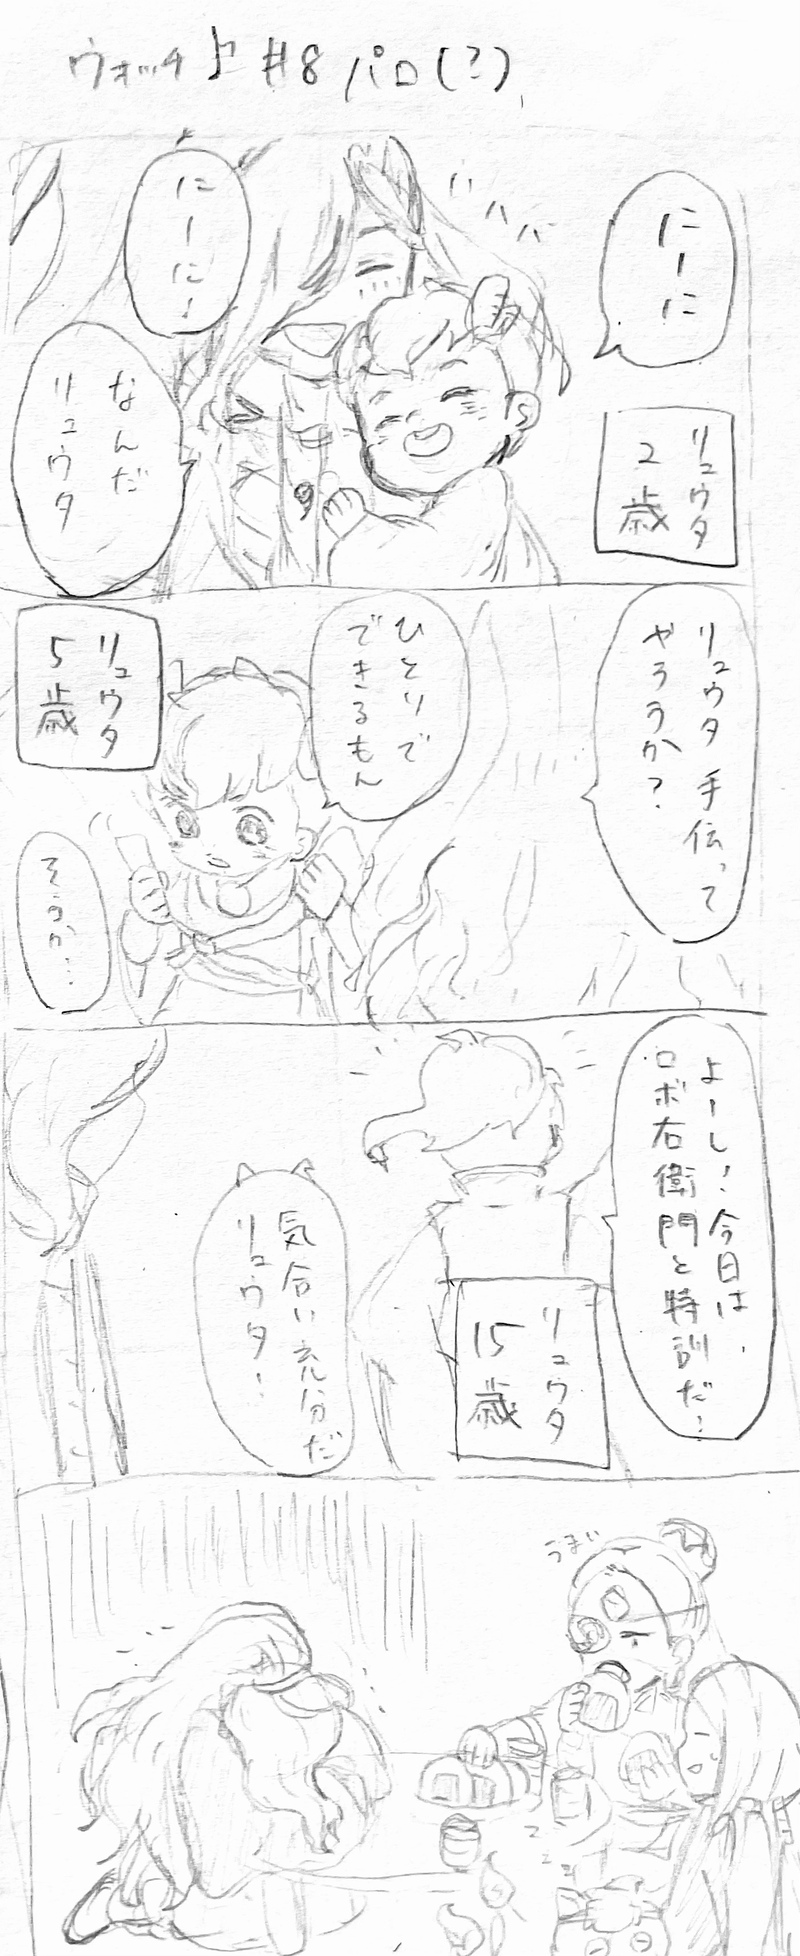 ウォッチ♪ #8 パロ(?)
にーに
リュウタ
2歳
にーに！
なんだ
リュウタ
リュウタ 手伝って
やろうか？
ひとりで
できるもん
リュウタ
5歳
そうか…
よーし！今日は
ロボ右衛門と特訓だ！
リュウタ
15歳
気合い充分だ
リュウタ！
うまい